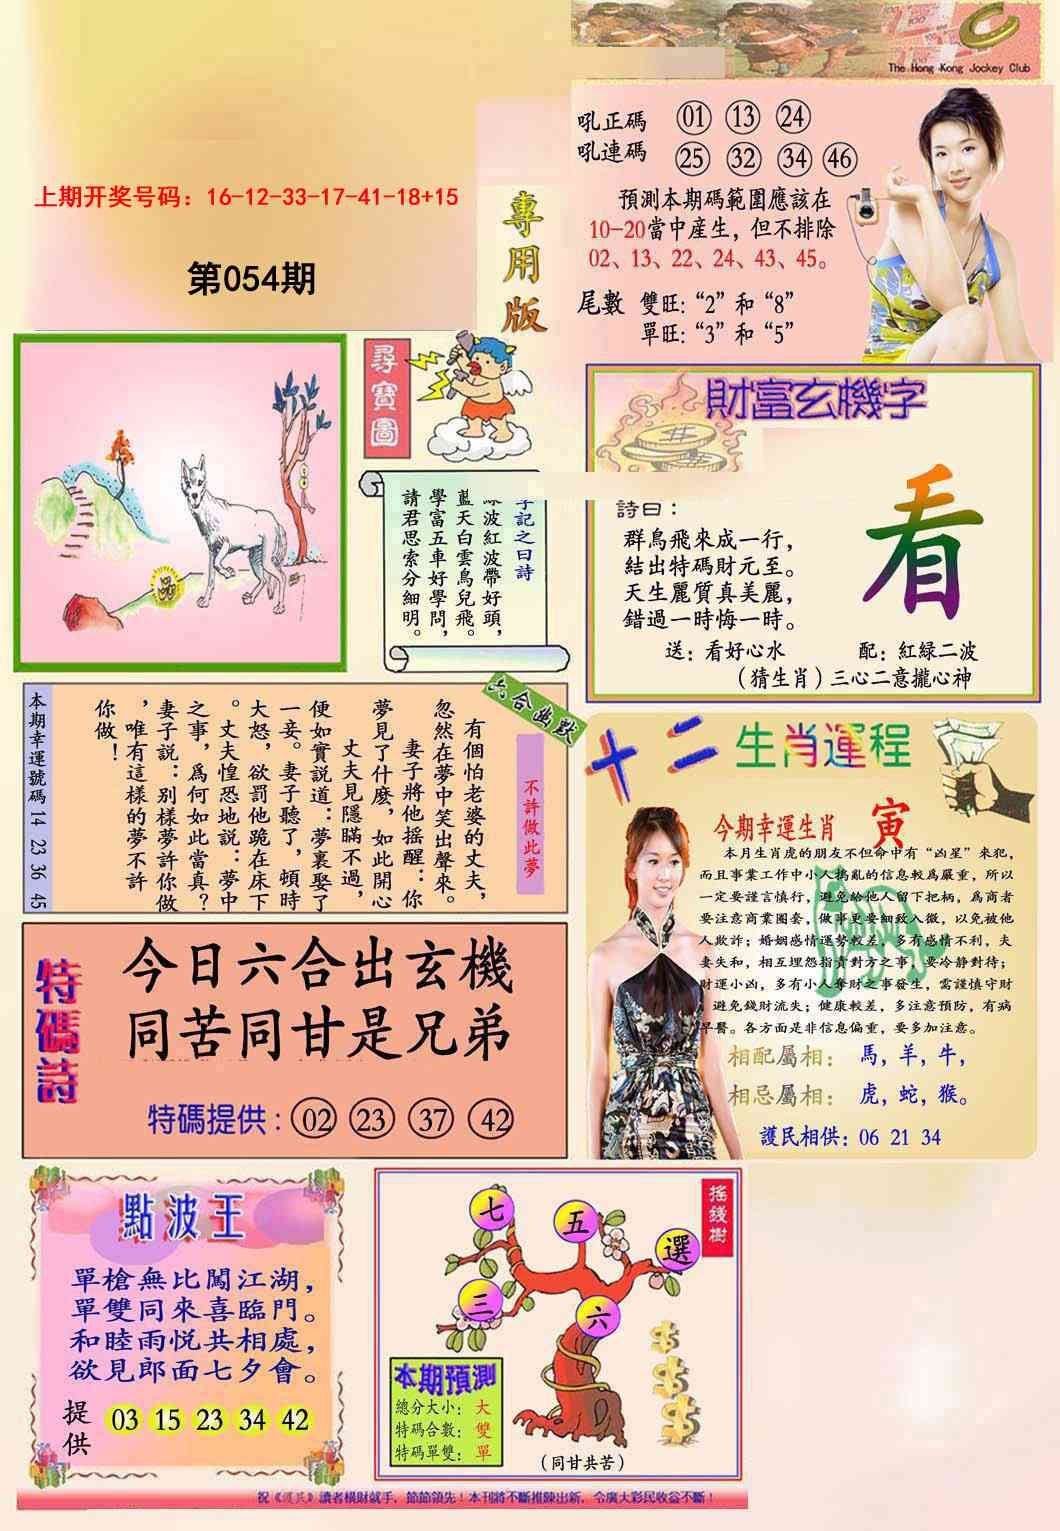 The Hong Kong Jockey Club
上期开奖号码：16-12-33-17-41-18+15
第054期
專用版
吼正碼 01 13 24
吼連碼 25 32 34 46
預測本期碼範圍應該在
10-20當中產生，但不排除
02、13、22、24、43、45。
尾數 雙旺：“2”和“8”
單旺：“3”和“5”
尋寶圖
字記之曰詩
波紅波帶好頭，
藍天白雲鳥兒飛。
學富五車好學問，
請君思索分細明。
財富玄機字
看
詩曰：
群鳥飛來成一行，
結出特碼財元至。
天生麗質真美麗，
錯過一時悔一時。
送：看好心水 配：紅綠二波
（猜生肖）三心二意攏心神
六合幽默
不許做此夢
有個怕老婆的丈夫，
忽然在夢中笑出聲來。
妻子將他搖醒：你
夢見了什麽，如此開心
丈夫見隱瞞不過，
便如實說道：夢裏娶了
一妾。妻子聽了，頓時
大怒，欲罰他跪在床下
。丈夫惶恐地說：夢中
之事，爲何如此當真？
妻子說：别樣夢許你做
，唯有這樣的夢不許
你做！
本期幸運號碼 14 23 36 45
十二生肖運程
今期幸運生肖 寅
本月生肖虎的朋友不但命中有“凶星”來犯，
而且事業工作中小人搗亂的信息較爲嚴重，所以
一定要謹言慎行，避免給他人留下把柄，爲商者
要注意商業圈套，做事更要細致入微，以免被他
人欺詐；婚姻感情運勢較差，多有感情不利，夫
妻失和，相互埋怨指責對方之事，要冷靜對待；
財運小凶，多有小人奪財之事發生，需謹慎守財
，避免錢財流失；健康較差，多注意預防，有病
早醫。各方面是非信息偏重，要多加注意。
相配屬相： 馬，羊，牛，
相忌屬相： 虎，蛇，猴。
護民相供：06 21 34
特碼詩
今日六合出玄機
同苦同甘是兄弟
特碼提供：02 23 37 42
點波王
單槍無比闖江湖，
單雙同來喜臨門。
和睦雨悅共相處，
欲見郎面七夕會。
提供 03 15 23 34 42
搖錢樹
七
五
選
三
六
本期預測
總分大小：大
特碼合數：雙
特碼單雙：單
（同甘共苦）
祝《護民》讀者橫財就手，節節領先！本刊將不斷推陳出新，令廣大彩民收益不斷！